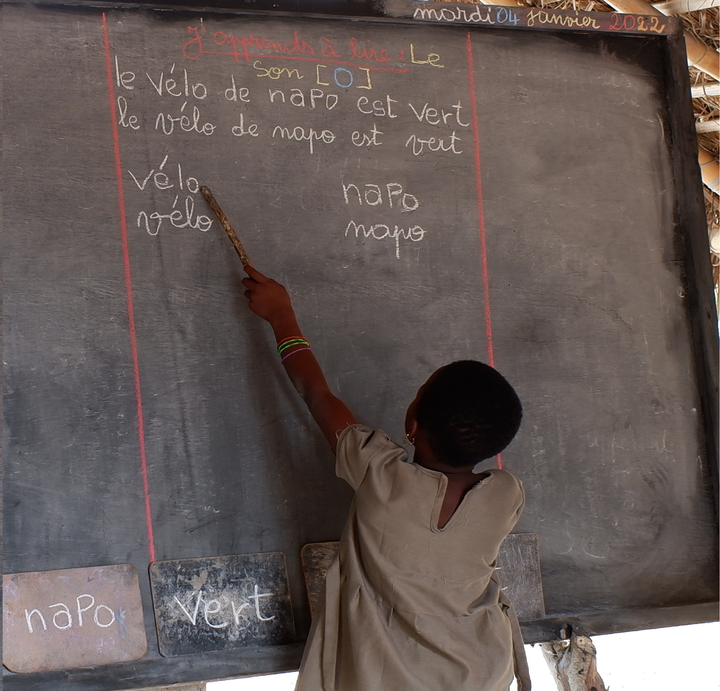 mardi 04 janvier 2022
J'apprends à lire : Le
son [O]
le vélo de napo est vert
le vélo de napo est vert
vélo napo
vélo napo
napo vert